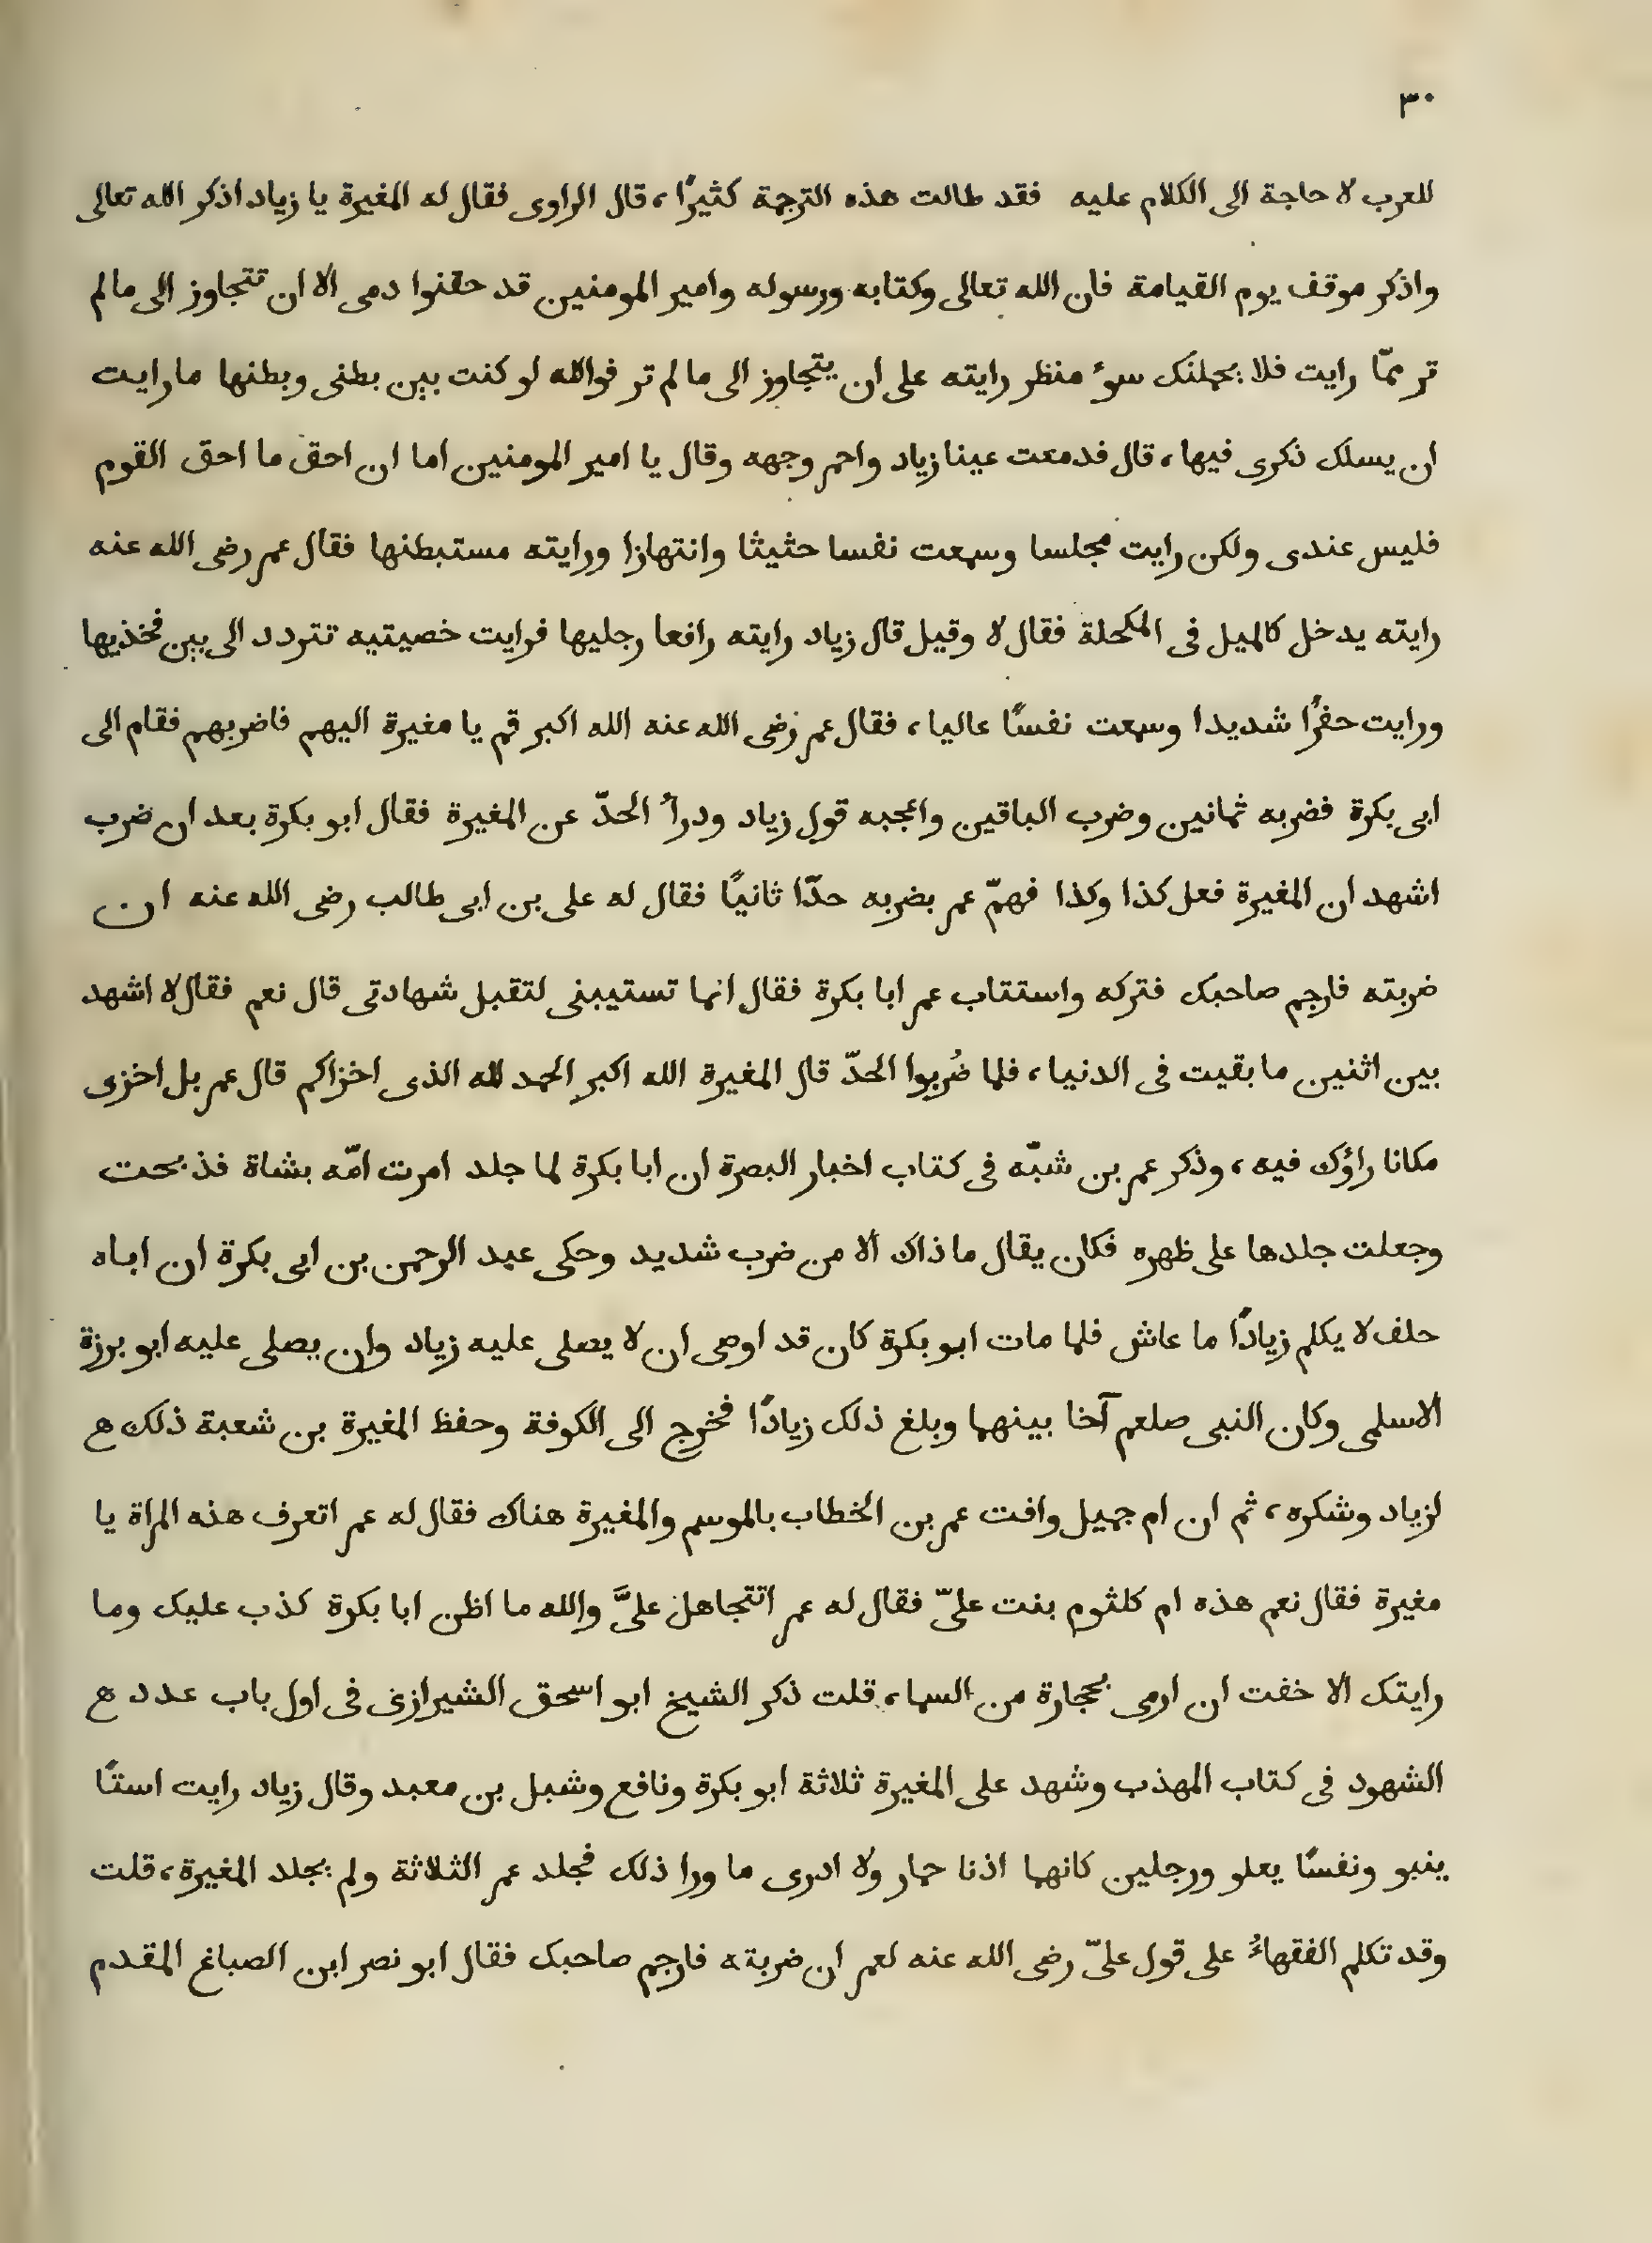 ٣٠
للعرب لا حاجة الى الكلام عليه فقد طالت هذه الترجمة كثيرًا، قال الراوى فقال له المغيرة يا زياد اذكر الله تعالى
واذكر موقف يوم القيامة فان الله تعالى وكتابه ورسوله وامير المومنين قد حقنوا دمى الا ان تتجاوز الى ما لم
تر ممّا رايت فلا يحملنك سوء منظر رايته على ان يتجاوز الى ما لم تر فوالله لو كنت بين بطنى وبطنها ما رايت
ان يسلك ذكرى فيها، قال فدمعت عينا زياد واحمر وجهه وقال يا امير المومنين اما ان احق ما احق القوم
فليس عندى ولكن رايت مجلسا وسمعت نفسا حثيثا وانتهازا ورايته مستبطنها فقال عمر رضى الله عنه
رايته يدخل كالميل فى المكحلة فقال لا وقيل قال زياد رايته رافعا رجليها فرايت خصيتيه تتردد الى بين فخذيها
ورايت حفزًا شديدا وسمعت نفسًا عاليا، فقال عمر رضى الله عنه الله اكبر قم يا مغيرة اليهم فاضربهم فقام الى
ابى بكرة فضربه ثمانين وضرب الباقين واعجبه قول زياد ودرأ الحدّ عن المغيرة فقال ابو بكرة بعد ان ضرب
اشهد ان المغيرة فعل كذا وكذا فهمّ عمر بضربه حدًّا ثانيًا فقال له على بن ابى طالب رضى الله عنه ان
ضربته فارجم صاحبك فتركه واستتاب عمر ابا بكرة فقال انما تستيبنى لتقبل شهادتى قال نعم فقال لا اشهد
بين اثنين ما بقيت فى الدنيا، فلما ضُربوا الحدّ قال المغيرة الله اكبر الحمد لله الذى اخزاكم قال عمر بل اخزى
مكانا راؤك فيه، وذكر عمر بن شبّه فى كتاب اخبار البصرة ان ابا بكرة لما جلد امرت امّه بشاة فذبحت
وجعلت جلدها على ظهره فكان يقال ما ذاك الا من ضرب شديد وحكى عبد الرحمن بن ابى بكرة ان اباه
حلف لا يكلم زيادًا ما عاش فلما مات ابو بكرة كان قد اوصى ان لا يصلى عليه زياد وان يصلى عليه ابو برزة
الاسلمى وكان النبى صلعم آخا بينهما وبلغ ذلك زيادًا فخرج الى الكوفة وحفظ المغيرة بن شعبة ذلك
لزياد وشكره، ثم ان ام جميل وافت عمر بن الخطاب بالموسم والمغيرة هناك فقال له عمر اتعرف هذه المراة يا
مغيرة فقال نعم هذه ام كلثوم بنت علىّ فقال له عمر اتتجاهل علىَّ والله ما اظن ابا بكرة كذب عليك وما
رايتك الا خفت ان ارمى بحجارة من السماء، قلت ذكر الشيخ ابو اسحق الشيرازى فى اول باب عدد
الشهود فى كتاب المهذب وشهد على المغيرة ثلاثة ابو بكرة ونافع وشبل بن معبد وقال زياد رايت استًا
ينبو ونفسًا يعلو ورجلين كانهما اذنا حمار ولا ادرى ما ورا ذلك فجلد عمر الثلاثة ولم يجلد المغيرة، قلت
وقد تكلم الفقهاءُ على قول علىّ رضى الله عنه لعمر ان ضربته فارجم صاحبك فقال ابو نصر ابن الصباغ المقدم